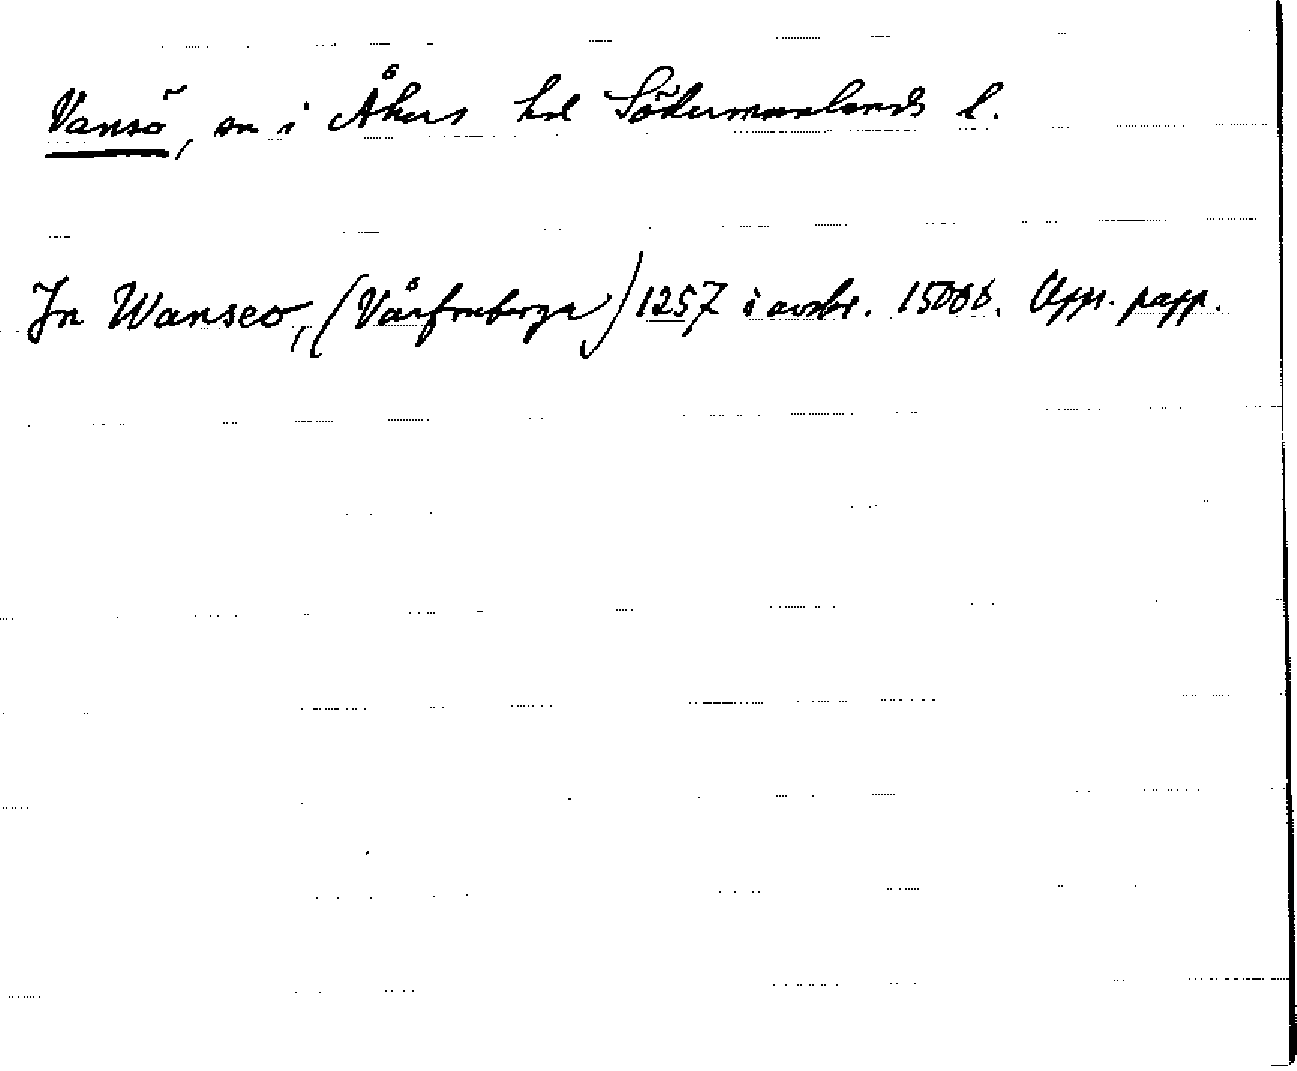 Vansö, sn i Åkers hd Södermanlands l.
In Wanseo, (Vårfruberga) 1257 i avskr. 1500b. Opr. papp.